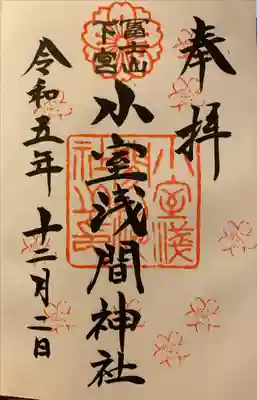 奉拝
冨士山
下宮
小室浅間神社
小室淺
間神
社之印
令和五年 十二月二日